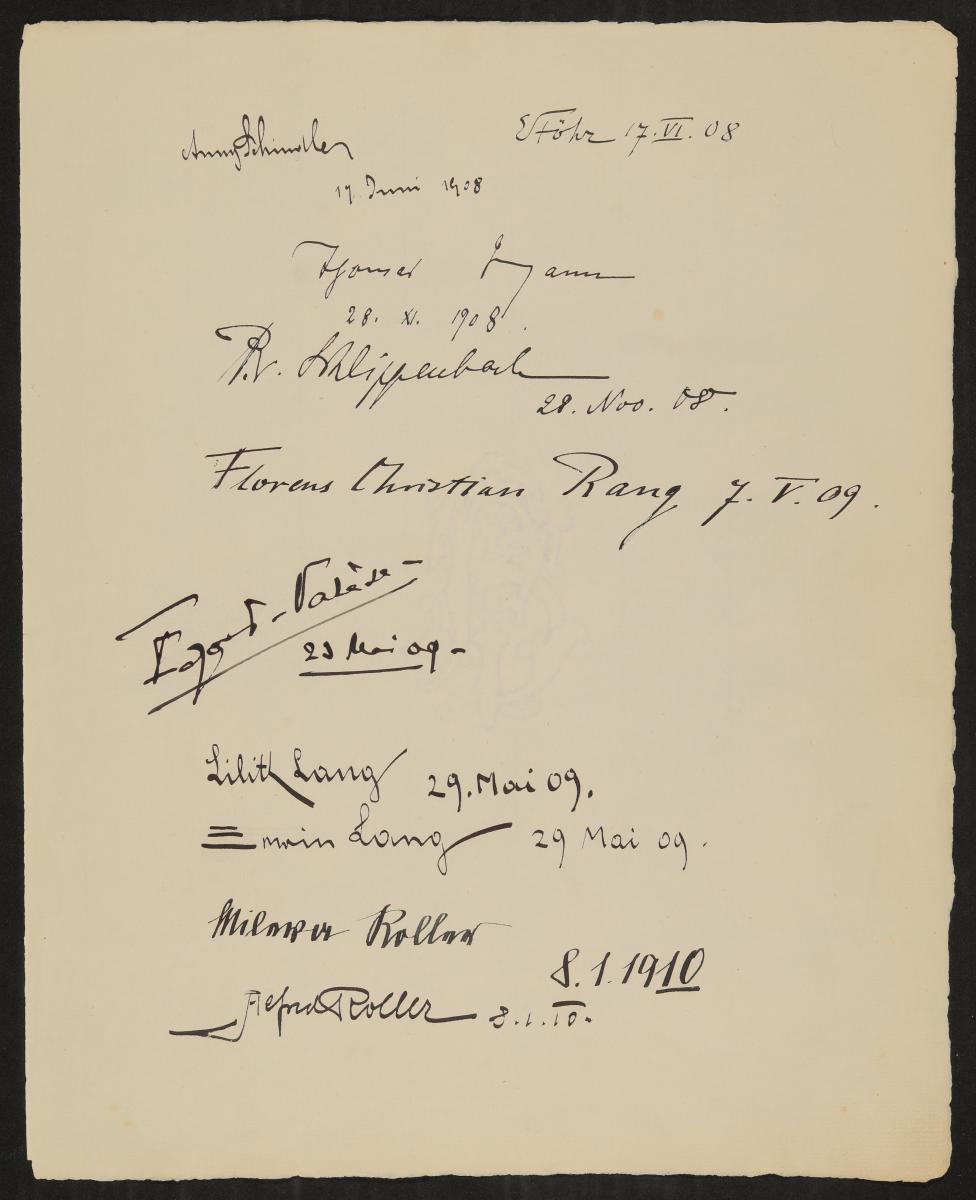 Anny Schindler
EStöhr 17.VI.08
17. Juni 1908
Thomas Mann
28. XI. 1908.
R. v. Schlippenbach
28. Nov. 08.
Florens Christian Rang 7. V. 09.
23 Mai 09-
Lilith Lang 29. Mai 09.
Erwin Lang 29 Mai 09.
Mileva Roller
8.1.1910
Alfred Roller 8.1.10.